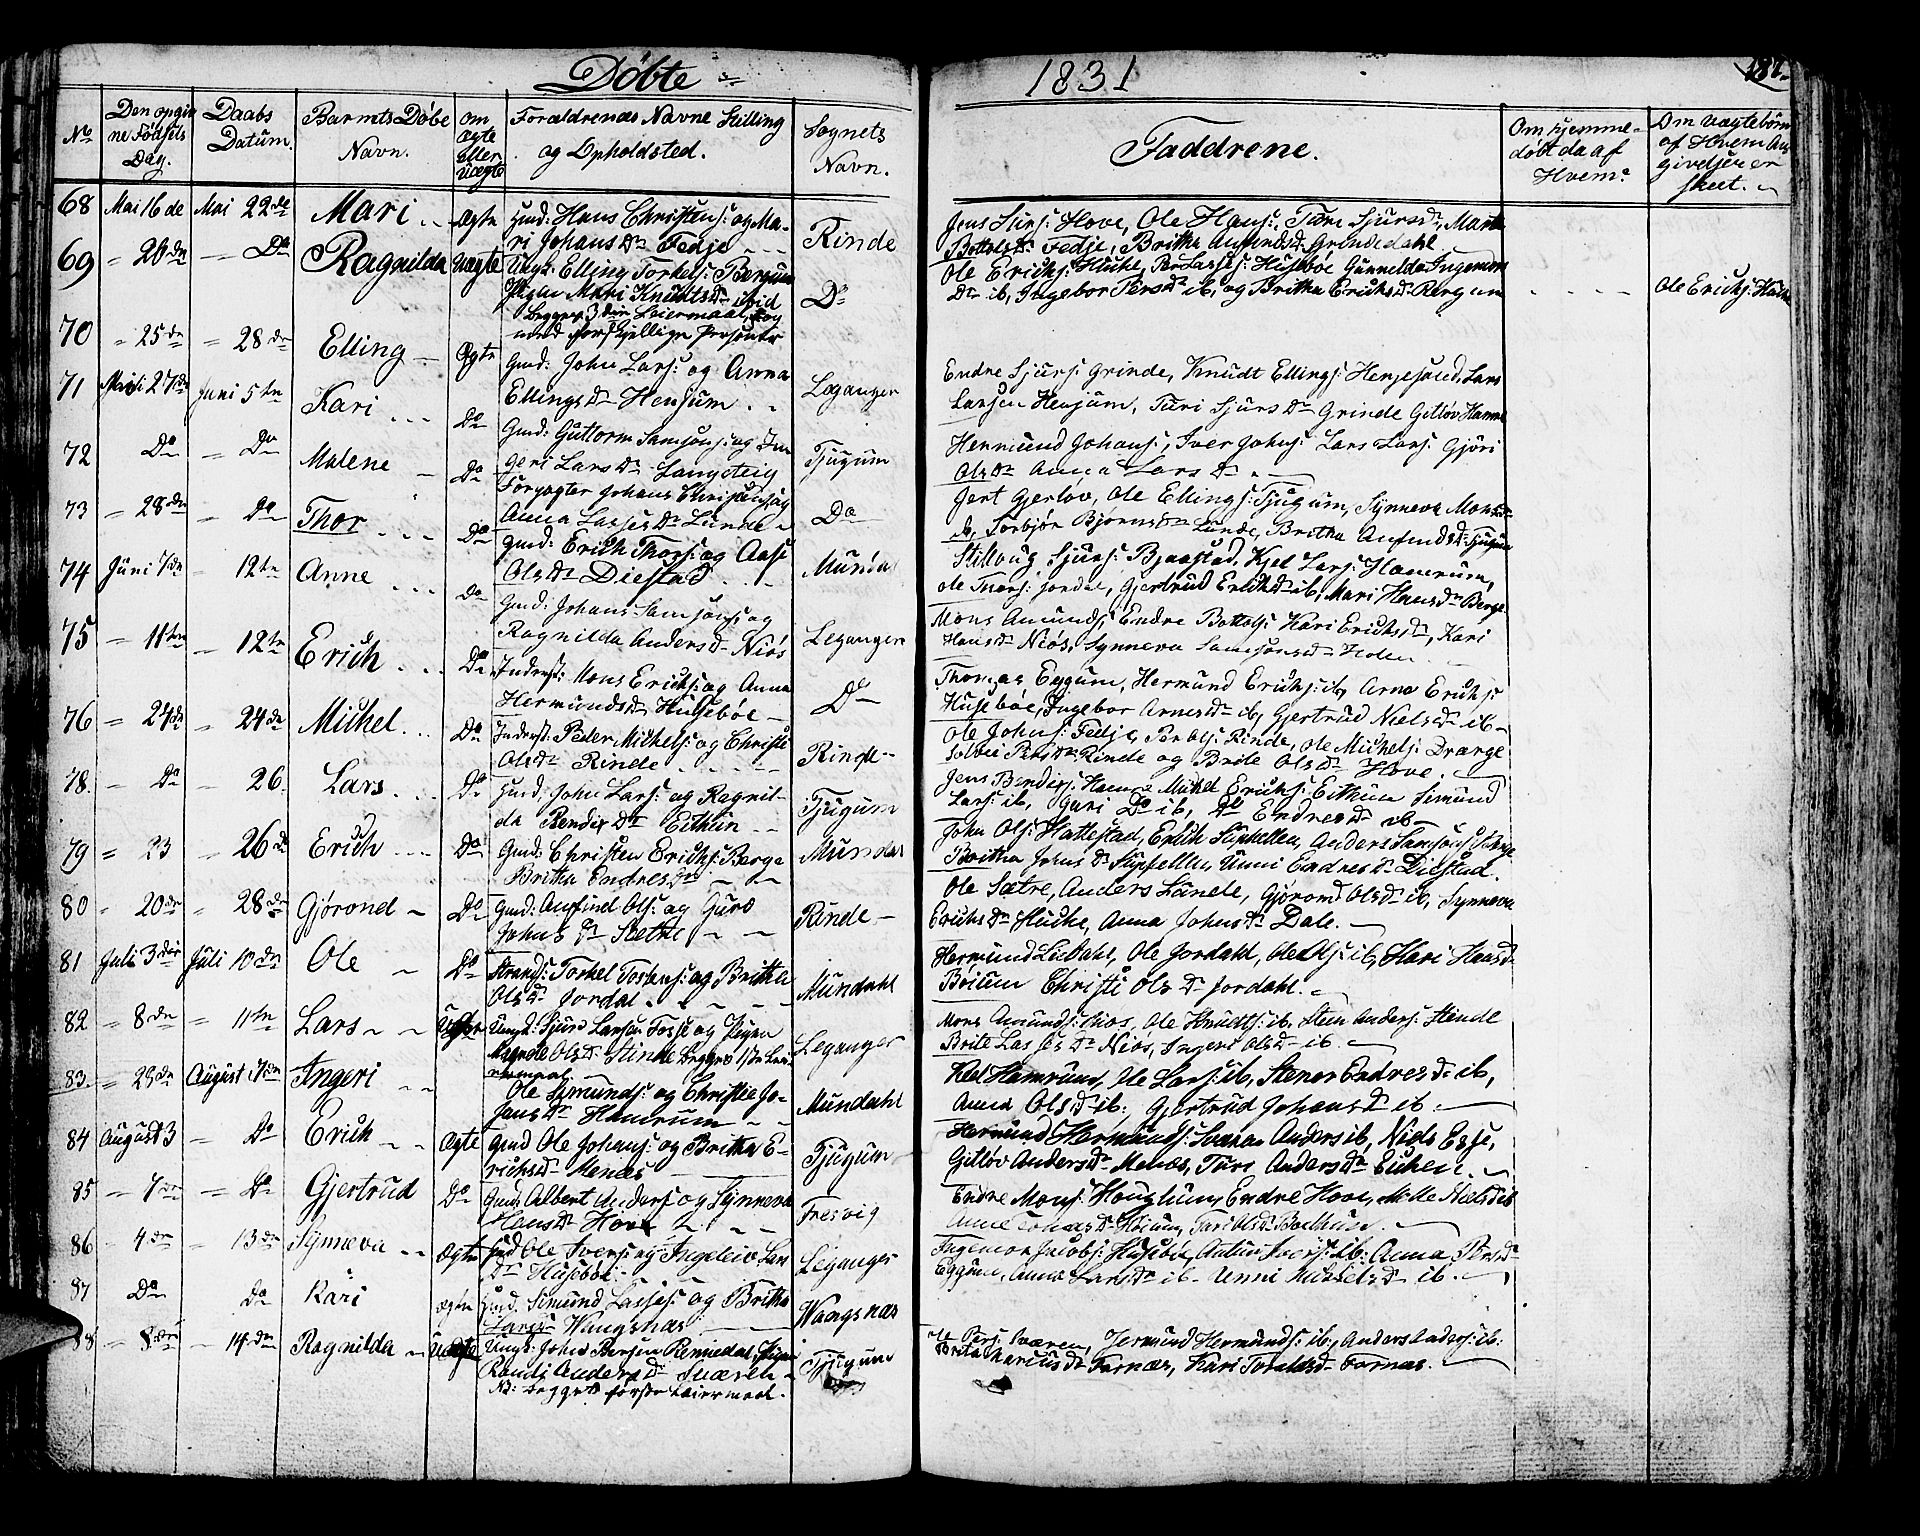 Döbte
1831
No
Den opgivne Födsels Dag.
Daabs Datum.
Barnets Döbe Navn.
om ægte eller uægte
Forældrenes Navne Stilling og Opholdsted.
Sognets Navn.
Faddrene.
Om hjemmedöbt da af Hvem.
Om uægtebörn af Hvem Angivelsen er skeet.
68 Mai 16 de Mai 22 de Mari Ægte Gmd: Hans Christens: og Mari Johans Dr Fedje Rinde
Jens Siurs: Hove, Ole Hans:, Turi Sjursdr, Marta
Bottolfs Dr Fedje, Britha Anfindsd. Grindedahl
69 " 20 de Do Ragnilda Uægte Ungk: Elling Torkels: Bergum
Pigen Mari Knudts Dr ibid
begges 3 die Leiermaal, og
med forskjellige Personer
Do
Ole Erichs: Huke, Per Lasses: Huseböe Gunnilda Ingemon
Dr ib, Ingebor Persdr ib, og Britha Erichs Dr Bergum
Ole Erichs: Huke
70 " 25 de " 28 de Elling Ægte Gmd: John Lars: og Anna
Ellings Dr Henjum Leganger
Endre Sjurs: Grinde, Knudt Ellings: Henjesand, Lars
Larsen Henjum, Turi Sjurs Dr Grinde Gitlöv Hamre
71 Mai 27 de Juni 5 te Kari Do Gmd: Guttorm Samsons: og In
geri Lars Dr Langeteig Tjugum
Hermund Johans:, Iver Johns: Lars Lars: Gjöri
Ols Dr Anna Lars Dr
72 Do Do Malene Do Forpagter Johans Christens: og
Anna Lasses Dr Lunde Do
Gert Gjerlöv, Ole Ellings: Tjugum, Synneva Mons
ib, Torbjör Björns Dr Lunde, Britha Anfinds D: Tjugum
73 " 28 de Do Thor Do Gmd: Erich Thors: og Aase
Ols Dr Diestad Mundal
Sjurs: Bjaastad, Kjel Lars: Hamrum,
Ole Thors: Jordal, Gjertrud Erichs Dr ib, Mari Hans Dr Berge
74 Juni 7 de 12 te Anne Do Gmd: Johans Samsons: og
Ragnilda Andersd Niös Leganger
Mons Amunds: Endre Bottols: Kari Erichs Dr, Kari
Hans Dr Niös, Synneva Samsons Dr Holen
75 " 11 te 12 te Erich Do Inderst: Mons Erichs: og Anna
Hermunds Dr Huseböe Do
Thomas Eggum, Hermund Erichs: ib, Arne Erichs:
Huseböe, Ingebor Arnesdr ib, Gjertrud Niels Dr ib
76 " 24 de 24 de Michel Do Inderst: Peder Michels: og Christi
Ols Dr Rinde Rinde
Ole Johns: Fedje, Per Ols: Rinde, Ole Michels: Dræge
Solvei Pers Dr Rinde og Brite Ols Dr Hove
78. Do 26. Lars Do Gmd: John Lars: og Ragnil-
da Bendix Dr Eithun Tjugum
Jens Bendix: Hamre Michel Erichs: Eithun Simund
Lars: ib, Guri Do ib, Do Endres Dr ib
79 " 23 26 de Erich Do Gmd: Christen Erichs: Berge
Britha Endres Dr Mundal
John Ols: Hattestad, Erich Supphellen, Anders Samsons: Berge
Britha Johns Dr Supphellen, Unni Endres Dr Diestad.
80 " 20 de " 28 de Gjörond Do Gmd: Anfind Ols: og Guro
Johns Dr Sæthre Rinde
Ole Sætre, Anders Lunde, Gjörond Ols Dr ib, Synneva
Erichs Dr Huke, Anna Johns Dr Dale.
81 Juli 3 die Juli 10 de Ole Do Strands: Torkel Tostens: og Britha
Ols Dr Jordal Mundahl
Hermund Liedahl, Ole Jordahl, Ole Ols: ib, Kari Hansd
Böium Christi Ols Dr Jordahl.
82 " 8 de " 11 te Lars Uægte Ungk: Sjurd Larsen Fosse og Pigen
Ols Dr Stinde begges 1ste Lei-
ermaal Leganger
Mons Amunds: Niös, Ole Knudts: ib, Sten Anders: Stinde
Brite Lasses Dr Niös, Ingeri Ols Dr ib.
83. " 29 de August 7 de Ingeri Ole Simunds: og Christie Jo-
hans Dr Hamrum Mundahl
Kiel Hamrum, Ole Lars: ib, Stener Endres Dr ib,
Anna Ols Dr ib:, Gjertrud Johans Dr ib.
84 August 3 Do Erich Ægte Gmd Ole Johans: og Britha E-
richs Dr Menæs Tjugum
Hermund Hermunds: Sværen Anders ib, Niels Esse,
Gitlöv Anders Dr Menæs, Turi Anders Dr Eichen.
85 " 7 de Do Gjertrud Do Gmd: Albert Anders: og Synneva
Hans Dr Hove Fresvig
Endre Mons: Hauglum, Endre Hove, Dr ib
Anne Dr Höium, Kari Ols Dr Boelhuus.
86 4 de 13 de Synneva Ægte Gmd Ole Ivers: og Ingeleiv Lars
Dr Husebö. Leganger
Ingemon Jacobs: Husebö, Ivers: ib: Anna Pers Dr
Eggum, Anna Lars Dr ib. Unni Michels Dr ib.
87 Do Do Kari Ægte Gmd. Simund Lasses: og Britha
Wangsnæs Waagsnæs
88 8 de 14 de Ragnilda Uægte Ungk: John Persen Romedal, Pigen
Randi Anders Dr Sværen
NB: begges förste Leiermaal. Tjugum
Ole Pers: Sværen, Jermund Hermunds: ib:, Anders Anders: ib:
Brita Marcus Dr Farnæs, Kari Toralds Dr Fornæs.